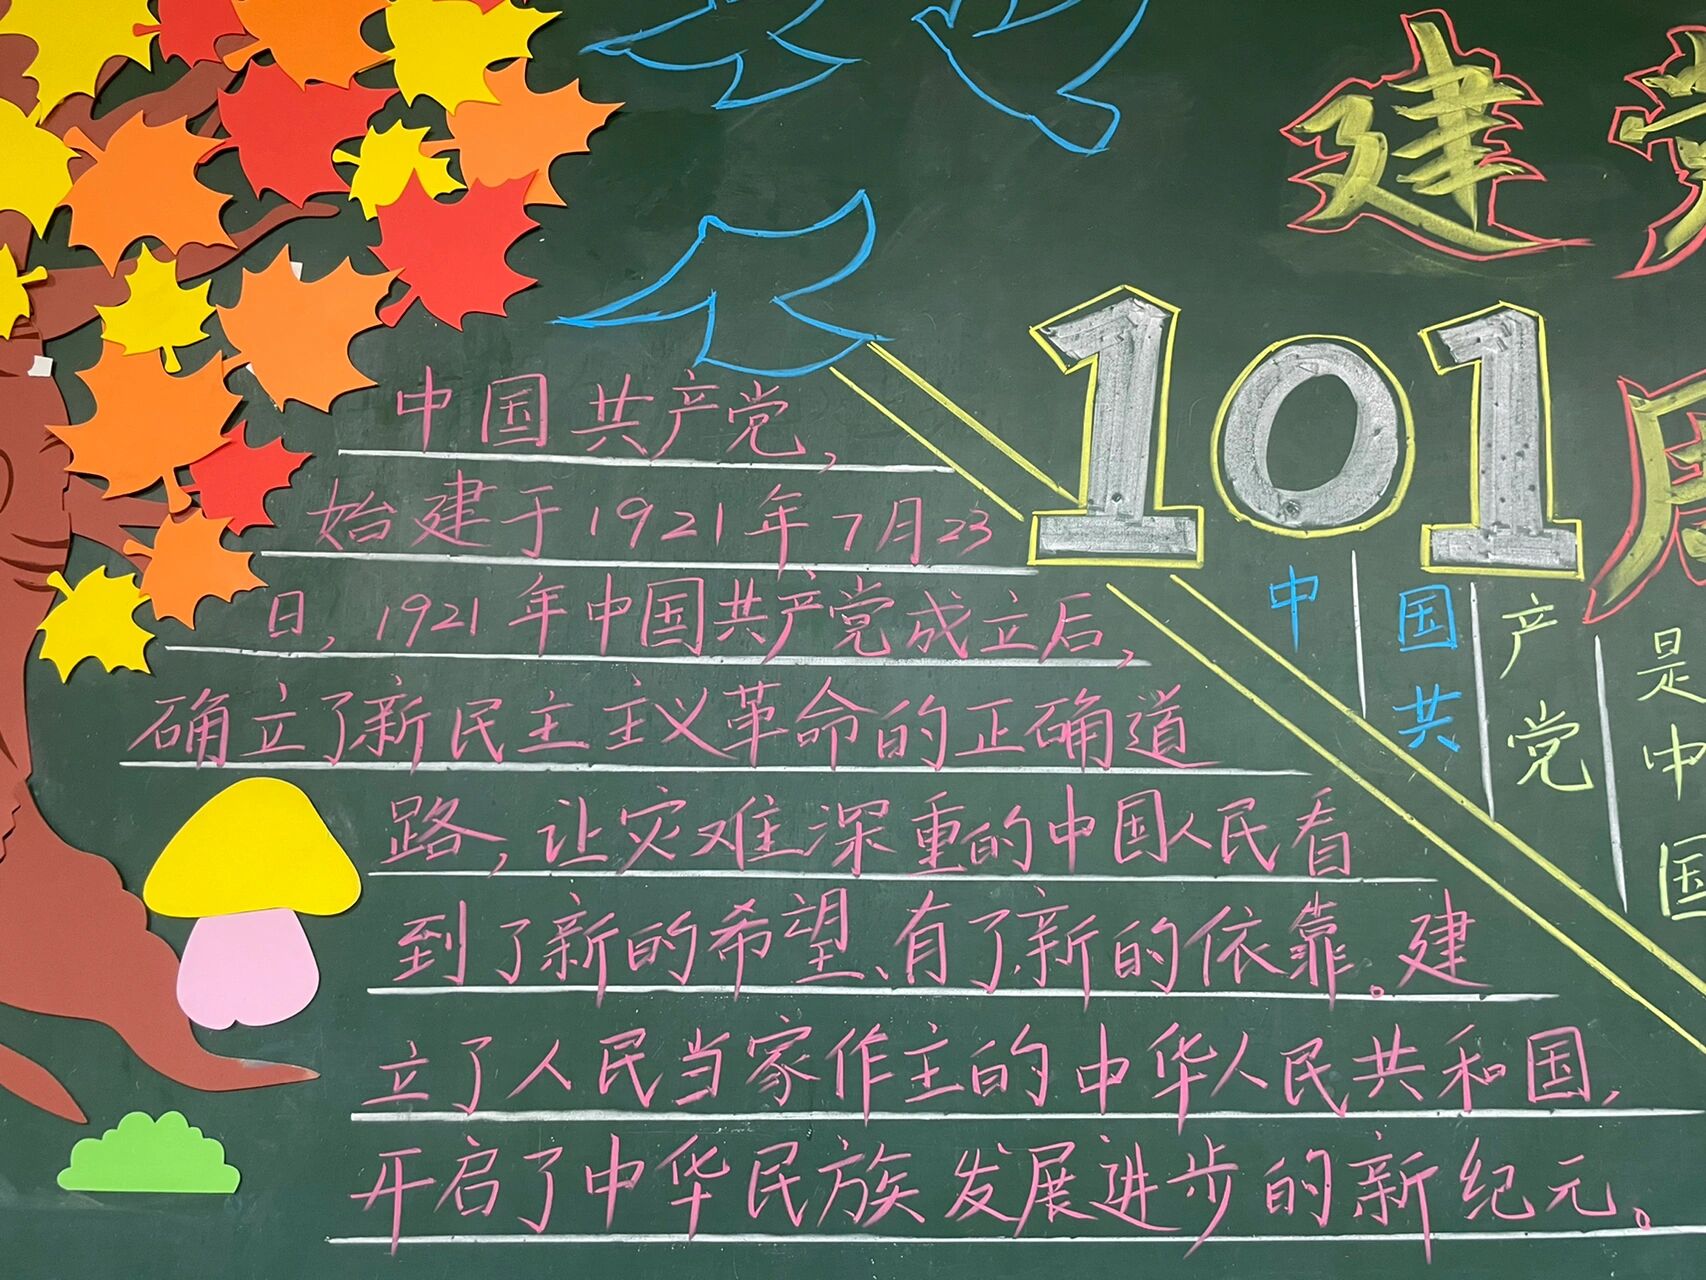 建党
101周
中国共产党，
始建于1921年7月23
日，1921年中国共产党成立后，
确立了新民主主义革命的正确道
路，让灾难深重的中国人民看
到了新的希望、有了新的依靠。建
立了人民当家作主的中华人民共和国，
开启了中华民族发展进步的新纪元。
中
国共
产党
是中国